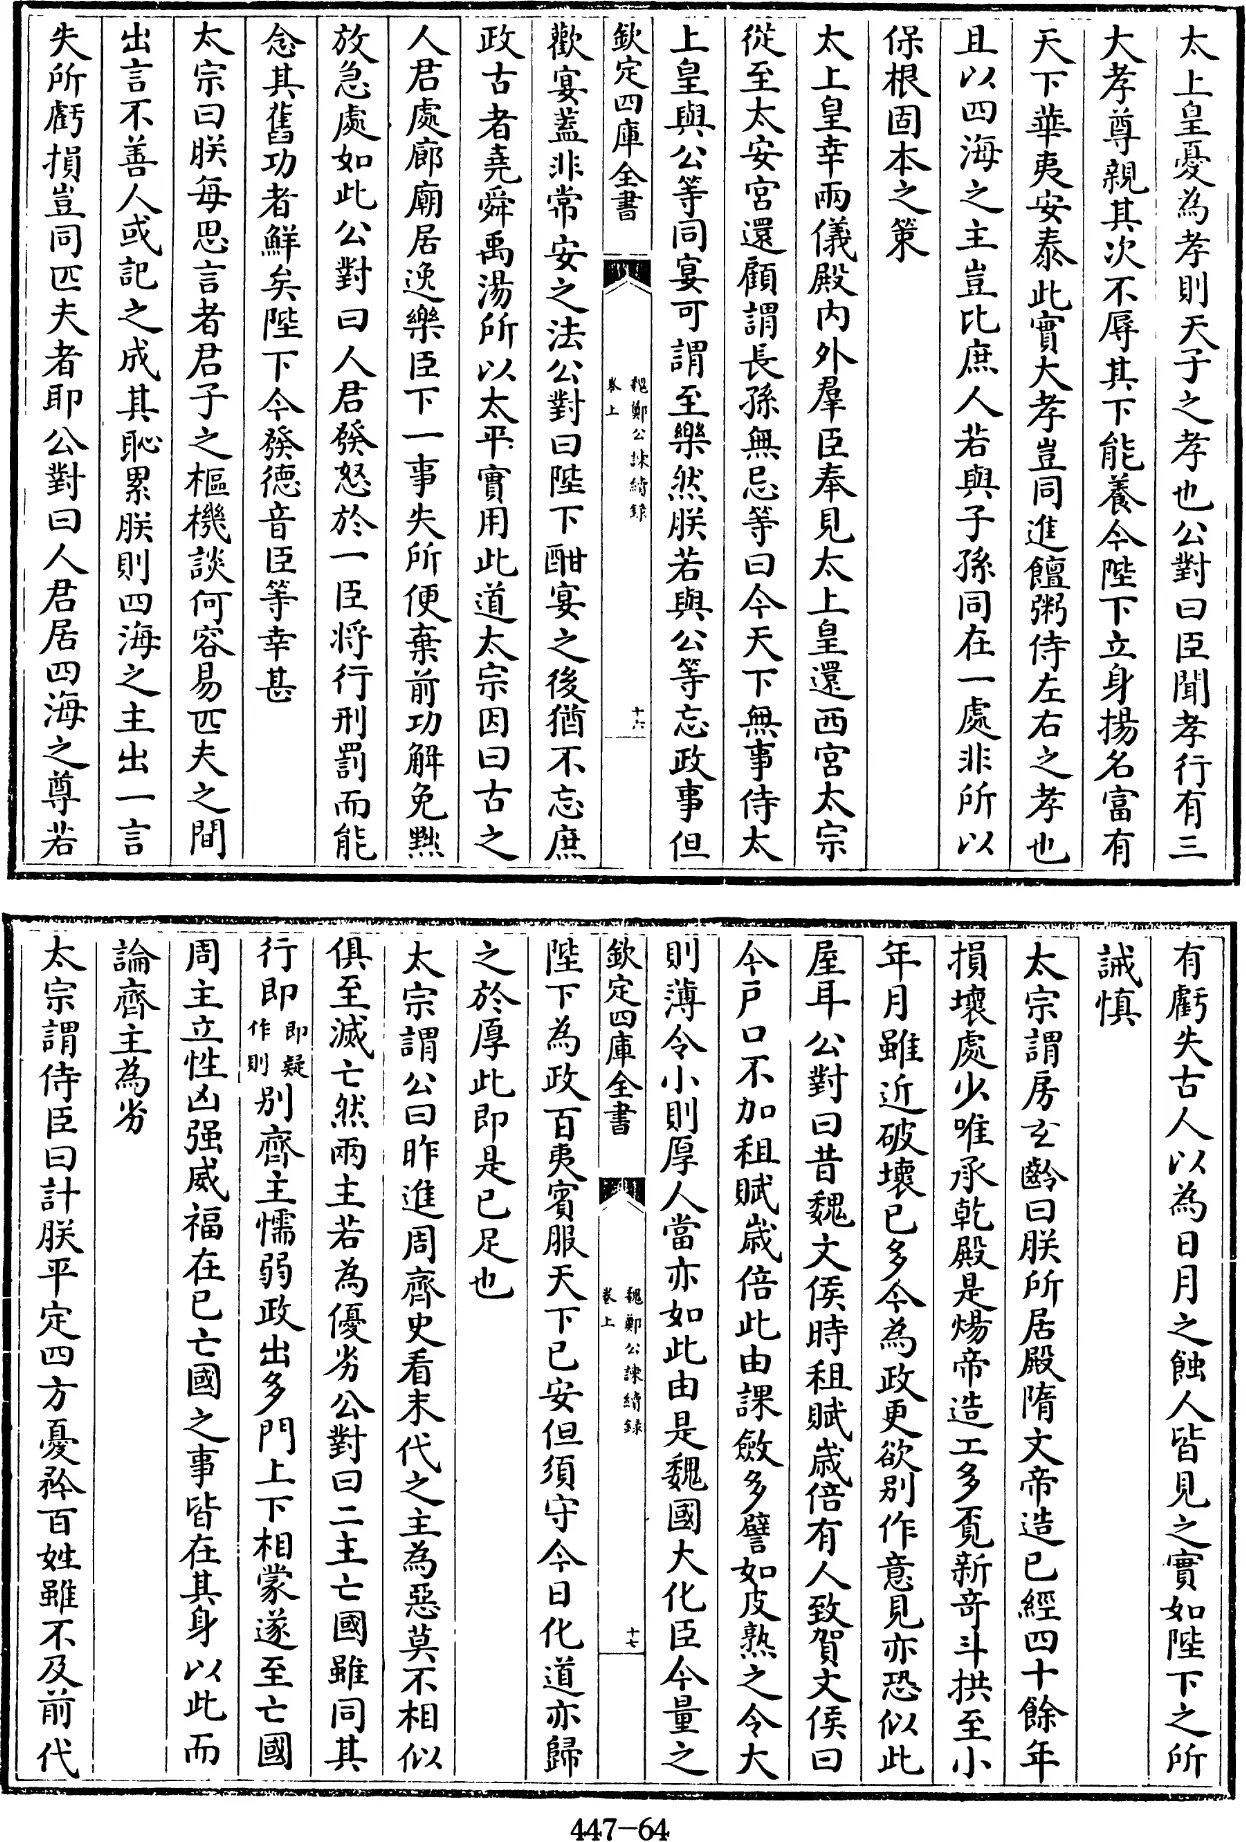 太上皇憂為孝則天子之孝也公對曰臣聞孝行有三
大孝尊親其次不辱其下能養今陛下立身揚名富有
天下華夷安泰此實大孝豈同進饘粥侍左右之孝也
且以四海之主豈比庶人若與子孫同在一處非所以
保根固本之策
太上皇幸兩儀殿内外羣臣奉見太上皇還西宮太宗
從至太安宮還顧謂長孫無忌等曰今天下無事侍太
上皇與公等同宴可謂至樂然朕若與公等忘政事但
欽定四庫全書
魏鄭公諫續録
卷上
十六
歡宴蓋非常安之法公對曰陛下酣宴之後猶不忘庶
政古者堯舜禹湯所以太平實用此道太宗因曰古之
人君處廊廟居逸樂臣下一事失所便棄前功解免黜
放急處如此公對曰人君發怒於一臣將行刑罰而能
念其舊功者鮮矣陛下今發德音臣等幸甚
太宗曰朕每思言者君子之樞機談何容易匹夫之間
出言不善人或記之成其恥累朕則四海之主出一言
失所虧損豈同匹夫者耶公對曰人君居四海之尊若
有虧失古人以為日月之蝕人皆見之實如陛下之所
誡慎
太宗謂房玄齡曰朕所居殿隋文帝造已經四十餘年
損壞處少唯承乾殿是煬帝造工多覓新竒斗拱至小
年月雖近破壞已多今為政更欲别作意見亦恐似此
屋耳公對曰昔魏文侯時租賦歲倍有人致賀文侯曰
今戸口不加租賦歲倍此由課斂多譬如皮熟之令大
則薄令小則厚人當亦如此由是魏國大化臣今量之
欽定四庫全書
魏鄭公諫續録
卷上
十七
陛下為政百夷賓服天下已安但須守今日化道亦歸
之於厚此即是已足也
太宗謂公曰昨進周齊史看末代之主為惡莫不相似
俱至滅亡然兩主若為優劣公對曰二主亡國雖同其
行即即疑作則别齊主懦弱政出多門上下相蒙遂至亡國
周主立性凶强威福在已亡國之事皆在其身以此而
論齊主為劣
太宗謂侍臣曰計朕平定四方憂矜百姓雖不及前代
447-64